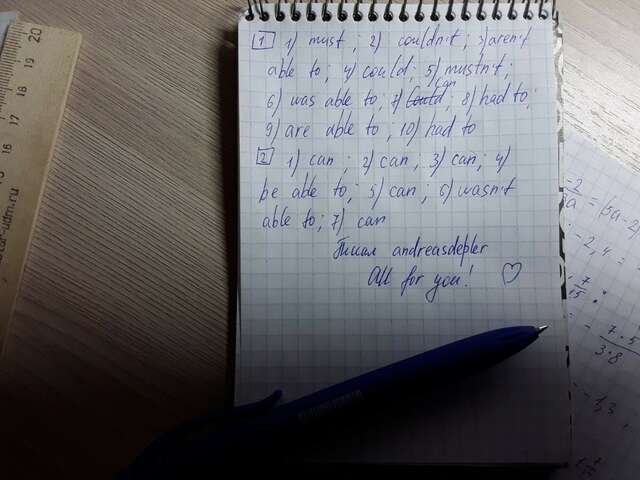 1 1) must; 2) couldn't; 3) aren't
able to; 4) could; 5) mustn't;
6) was able to; 7) could can; 8) had to;
9) are able to; 10) had to
2 1) can; 2) can, 3) can; 4)
be able to; 5) can; 6) wasn't
able to; 7) can
Писал andreasdepler
All for you! ♡
20
19
18
17
16
15